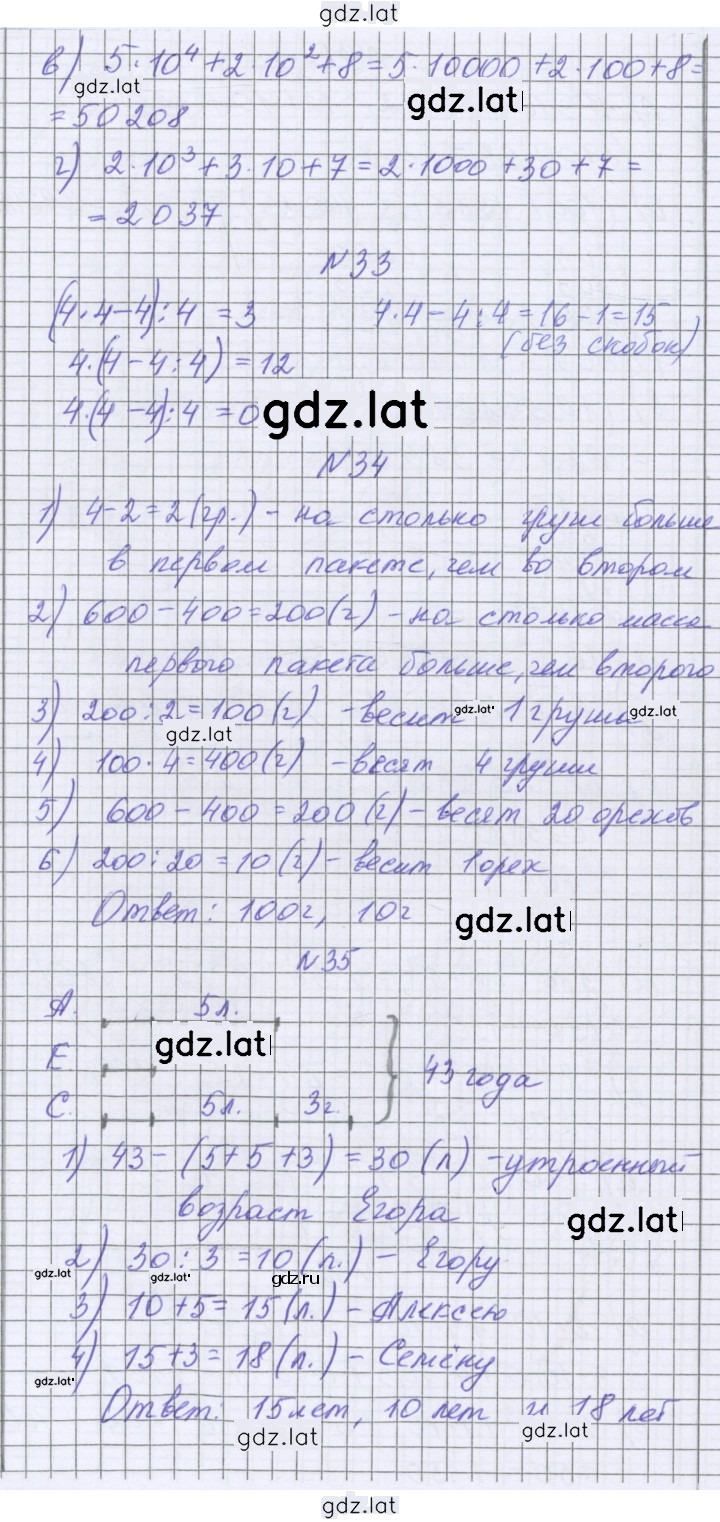 gdz.lat
в) 5·10⁴+2·10²+8=5·10000+2·100+8=
gdz.lat
gdz.lat
=50208
г) 2·10³+3·10+7=2·1000+30+7=
=2037
N33
(4·4-4):4=3
4·4-4:4=16-1=15
(без скобок)
4·(4-4:4)=12
4·(4-4):4=0
gdz.lat
N34
1) 4-2=2(гр.)-на столько груш больше
в первом пакете, чем во втором
2) 600-400=200(г)-на столько масса
первого пакета больше, чем второго
3) 200:2=100(г) -весит 1 груша
gdz.lat
gdz.lat
gdz.lat
4) 100·4=400(г) -весят 4 груши
5) 600-400=200(г)-весят 20 орехов
6) 200:20=10(г)-весит 1 орех
Ответ: 100г, 10г
gdz.lat
N35
А. 5л.
gdz.lat
Е
43 года
С. 5л. 3г.
1) 43-(5+5+3)=30(л)-утроенный
возраст Егора
gdz.lat
2) 30:3=10(л.)-Егору
gdz.lat
gdz.lat
gdz.ru
3) 10+5=15(л.)-Алексею
4) 15+3=18(л.)-Семёну
gdz.lat
Ответ: 15 лет, 10 лет и 18 лет
gdz.lat
gdz.lat
gdz.lat